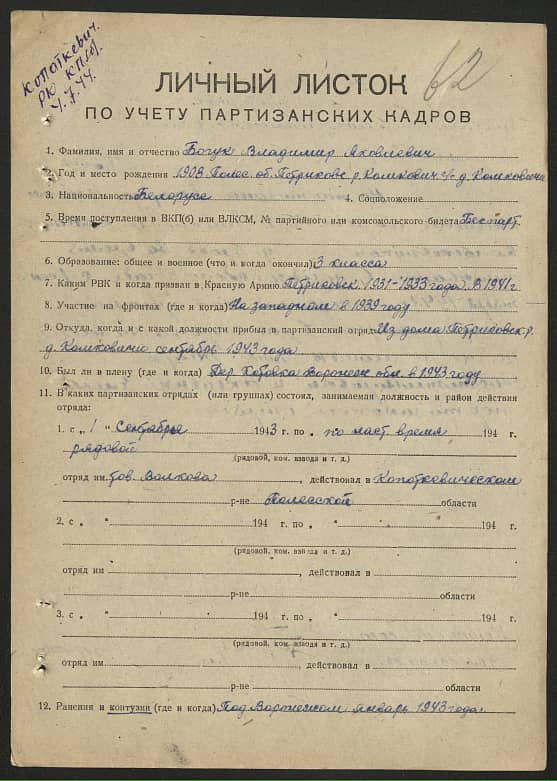 Копаткевич.
РК КП(б).
4.7.44.
62
ЛИЧНЫЙ ЛИСТОК
ПО УЧЕТУ ПАРТИЗАНСКИХ КАДРОВ
1. Фамилия, имя и отчество Богук Владимир Яковлевич
2. Год и место рождения 1908 Полес. об. Петриковс. р. Комкович. с/с д. Комковичи
3. Национальность Белорусс 4. Соцположение
5. Время поступления в ВКП(б) или ВЛКСМ, № партийного или комсомольского билета Беспарт.
6. Образование: общее и военное (что и когда окончил) 3 класса
7. Каким РВК и когда призван в Красную Армию Петриковск. 1931-1933 года. В 1941 г
8. Участие на фронтах (где и когда) На западном в 1939 году
9. Откуда, когда и с какой должности прибыл в партизанский отряд Из дома Петриковск р.
д. Комковичи сентябрь 1943 года
10. Был ли в плену (где и когда) Дер. Воронеж обл. в 1943 году
11. В каких партизанских отрядах (или группах) состоял, занимаемая должность и район действия
отряда:
1. с „ 1 " Сентября 1943 г. по „ по наст. время 194 г.
рядовой
(рядовой, ком. взвода и т. д.)
отряд им. тов. Волкова, действовал в Копаткевическом
р-не Полесской области
2. с „ " 194 г. по „ " 194 г.
(рядовой, ком. взвода и т. д.)
отряд им , действовал в
р-не области
3. с „ " 194 г. по „ " 194 г.
(рядовой, ком. взвода и т. д.)
отряд им , действовал в
р-не области
12. Ранения и контузии (где и когда) Под Воронежом январь 1943 года.